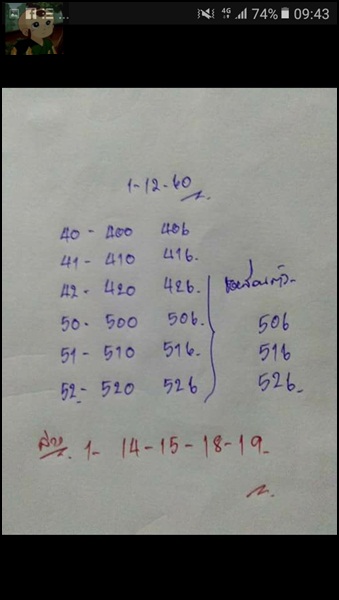 4G 74% 09:43
1-12-60
40 - 400 406
41 - 410 416.
42 - 420 426.
50 - 500 506.
51 - 510 516.
52 - 520 526
506
516
526.
1- 14-15-18-19.